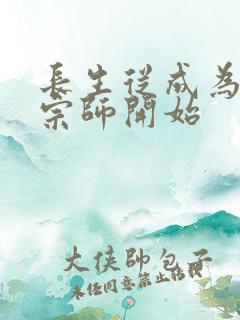 長生從成為
宗師開始
大俠帥包子
未经同意禁止转载